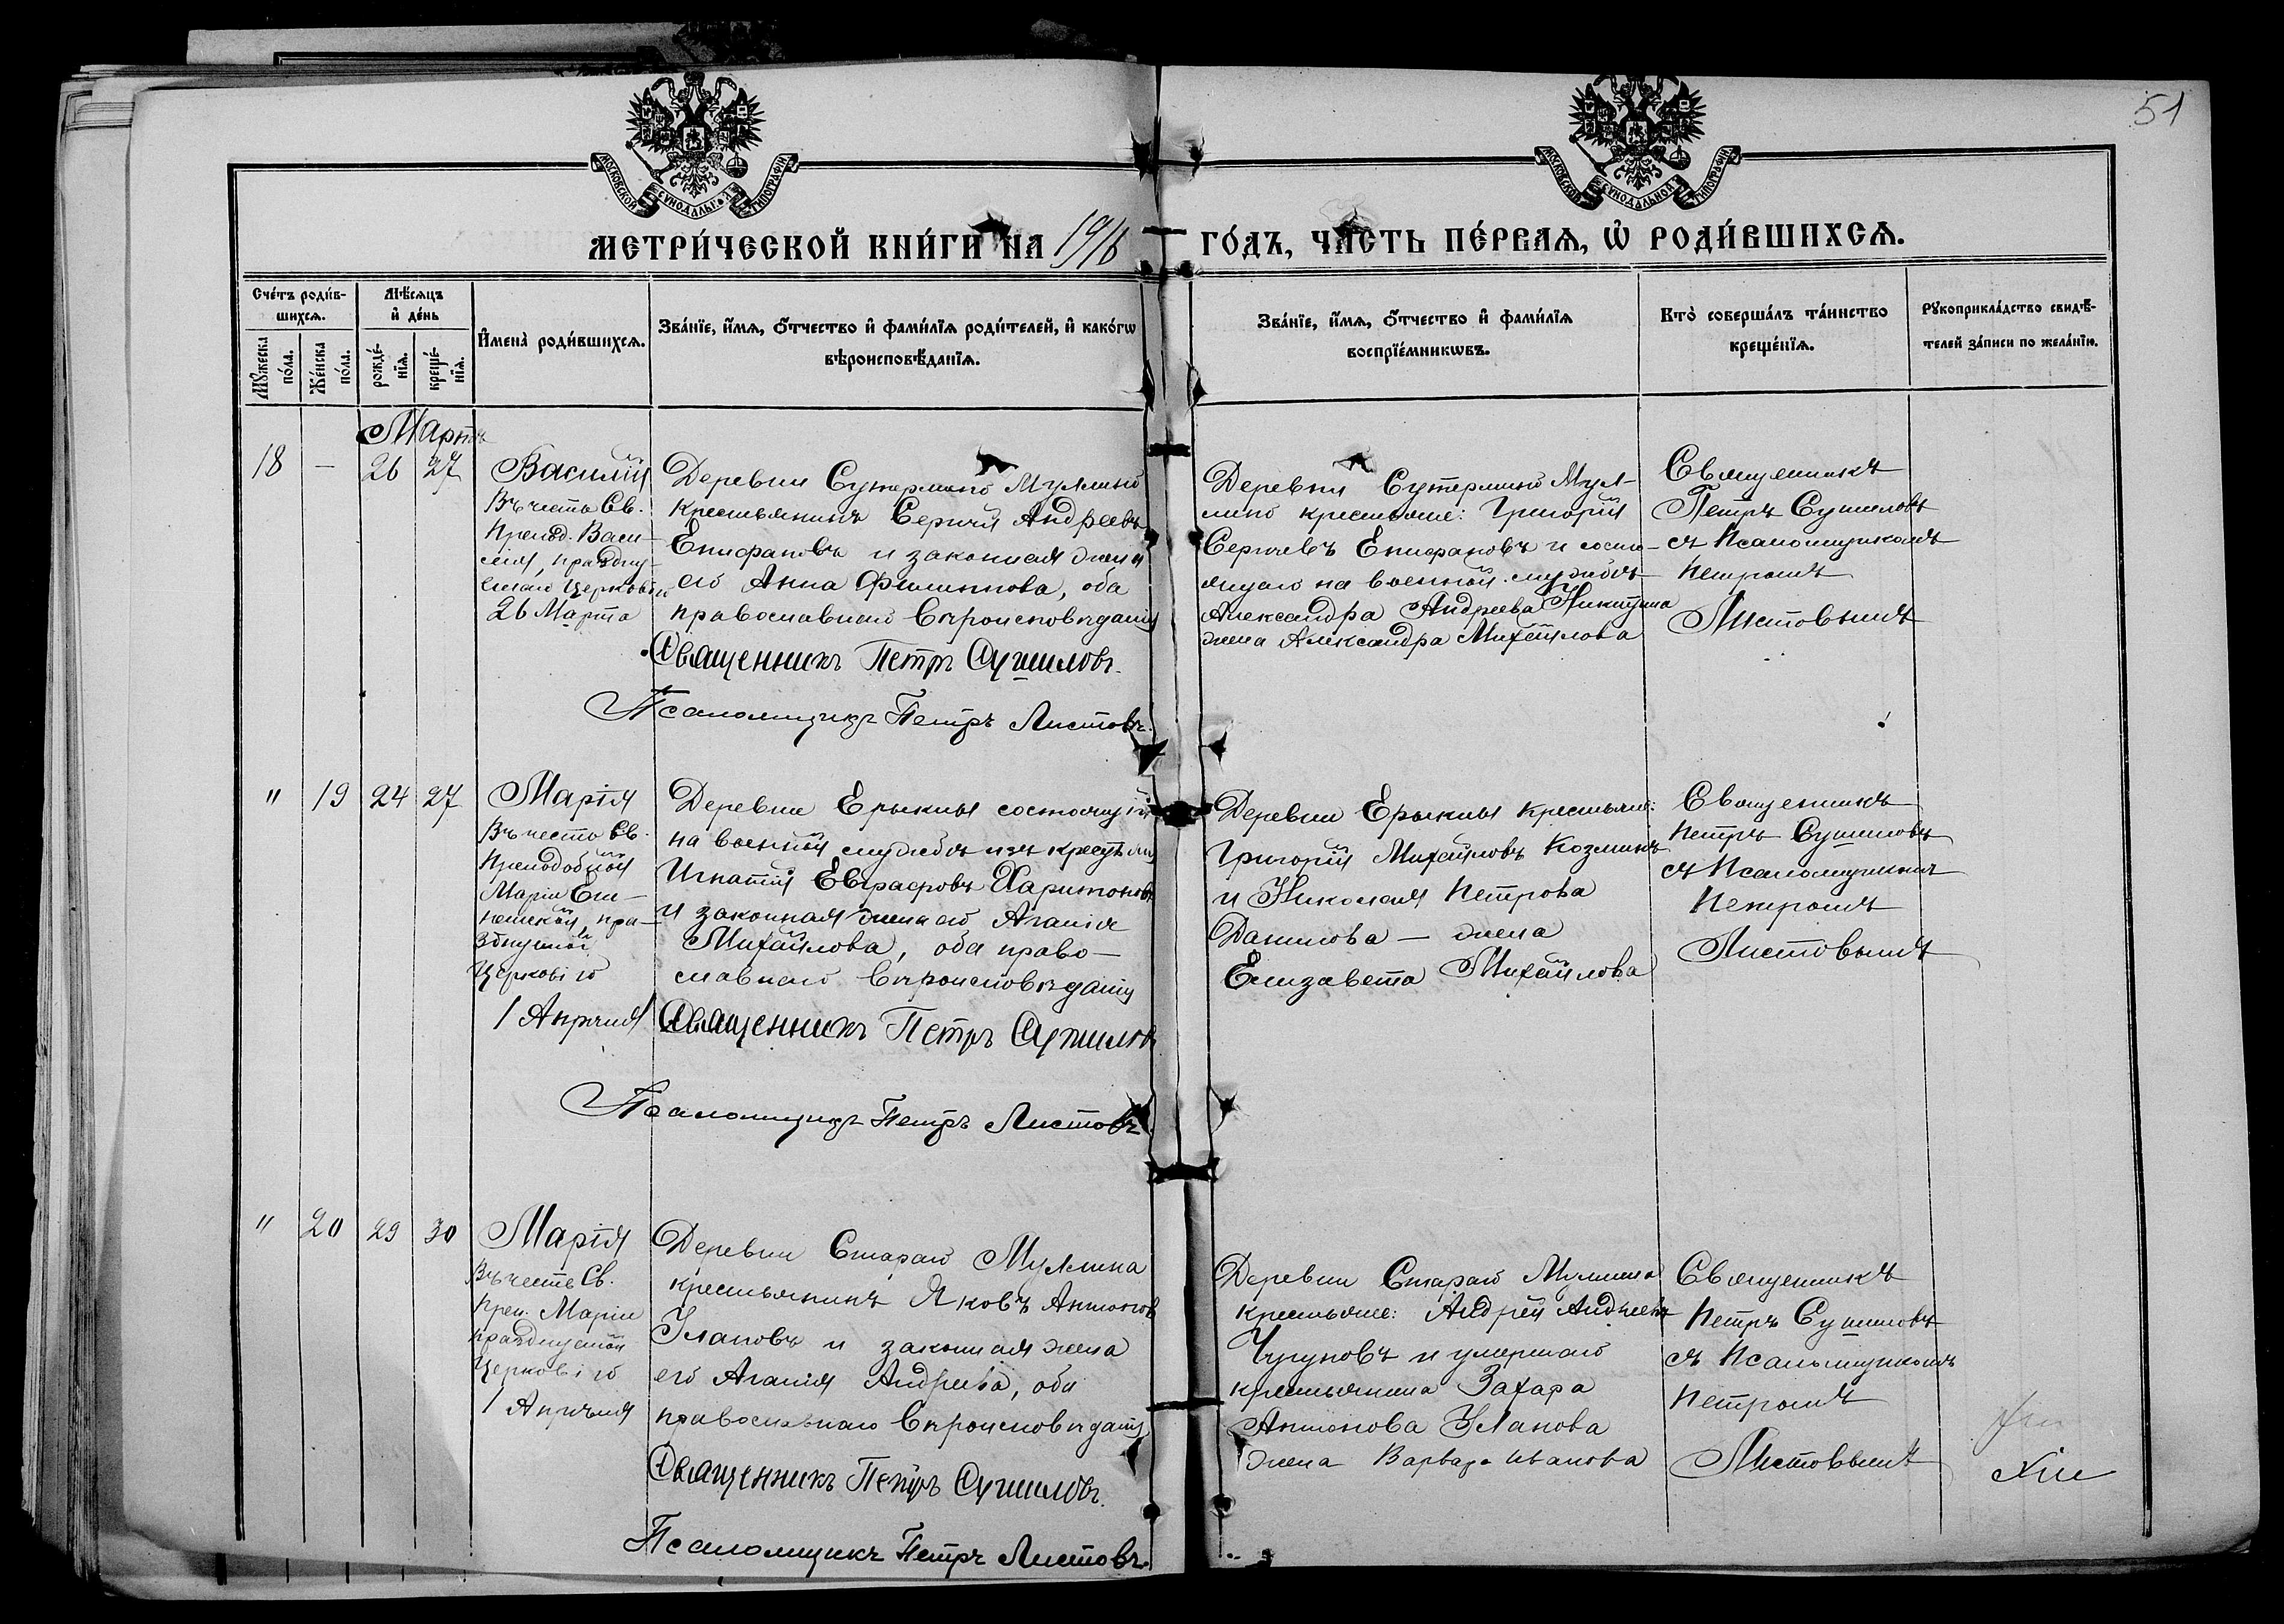 51
МОСКОВСКОЙ СУНОДАЛЬНОЙ ТИПОГРАФІИ
МОСКОВСКОЙ СУНОДАЛЬНОЙ ТИПОГРАФІИ
МЕТРИ́ЧЕСКОЙ КНИ́ГИ НА 1916 ГО́ДЪ, ЧА́СТЬ ПЕ́РВАЯ, Ѡ РОДИ́ВШИХСЯ.
Сче́тъ роди́в-
шихся.
Мꙋ́жеска по́ла.
Же́нска по́ла.
Мѣ́сяцъ и де́нь
рожде́-
нїя.
креще́-
нїя.
И҆мена̀ роди́вшихся.
Зва́нїе, и҆́мя, ѻ҆́тчество и҆ фами́лїя роди́телей, и҆ како́гѡ
вѣроисповѣ́данїя.
Зва́нїе, и҆́мя, ѻ҆́тчество и҆ фами́лїя
воспрїе́мникѡвъ.
Кто̀ соверша́лъ та́инство
креще́нїя.
Рꙋкоприкла́дство свидѣ́-
телей за́писи по жела́нїю.
Мартъ
18 — 26 27
Василій
Въ честь Св.
Препод. Васи-
лія, праздну-
емаго Церковію
26 Марта
Деревни Сутермино Муллино
крестьянинъ Сергѣй Андреевъ
Епифановъ и законная жена
его Анна Филиппова, оба
православнаго вѣроисповѣданія
Священникъ Петръ Сушиловъ.
Псаломщикъ Петръ Листовъ.
Деревни Сутермино Мул-
лино крестьяне: Григорій
Сергѣевъ Епифановъ и состо-
ящаго на военной службѣ
Александра Андреева Никитина
жена Александра Михайлова
Священникъ
Петръ Сушиловъ
съ Псаломщикомъ
Петромъ
Листовымъ
" 19 24 27
Марія
Въ честь Св.
Преподобной
Маріи Еги-
петской, пра-
зднуемой
Церковію
1 Апрѣля
Деревни Ерыклы состоящій
на военной службѣ изъ крестьянъ
Игнатій Евграфовъ Харитоновъ
и законная жена его Агапія
Михайлова, оба право-
славнаго вѣроисповѣданія
Священникъ Петръ Сушиловъ
Псаломщикъ Петръ Листовъ
Деревни Ерыклы крестьяне:
Григорій Михайловъ Козминъ
и Николая Петрова
Данилова — жена
Елизавета Михайлова
Священникъ
Петръ Сушиловъ
съ Псаломщикомъ
Петромъ
Листовымъ
" 20 29 30
Марія
Въ честь Св.
Преп. Маріи
празднуемой
Церковію
1 Апрѣля
Деревни Стараго Муллина
крестьянинъ Яковъ Антонов
Улановъ и законная жена
его Агапія Андреева, оба
православнаго вѣроисповѣданія
Священникъ Петръ Сушиловъ.
Псаломщикъ Петръ Листовъ.
Деревни Стараго Муллина
крестьяне: Андрей Андреевъ
Чугуновъ и умершаго
крестьянина Захара
Антонова Уланова
жена Варвара Иванова
Священникъ
Петръ Сушиловъ
съ Псаломщикомъ
Петромъ
Листовымъ